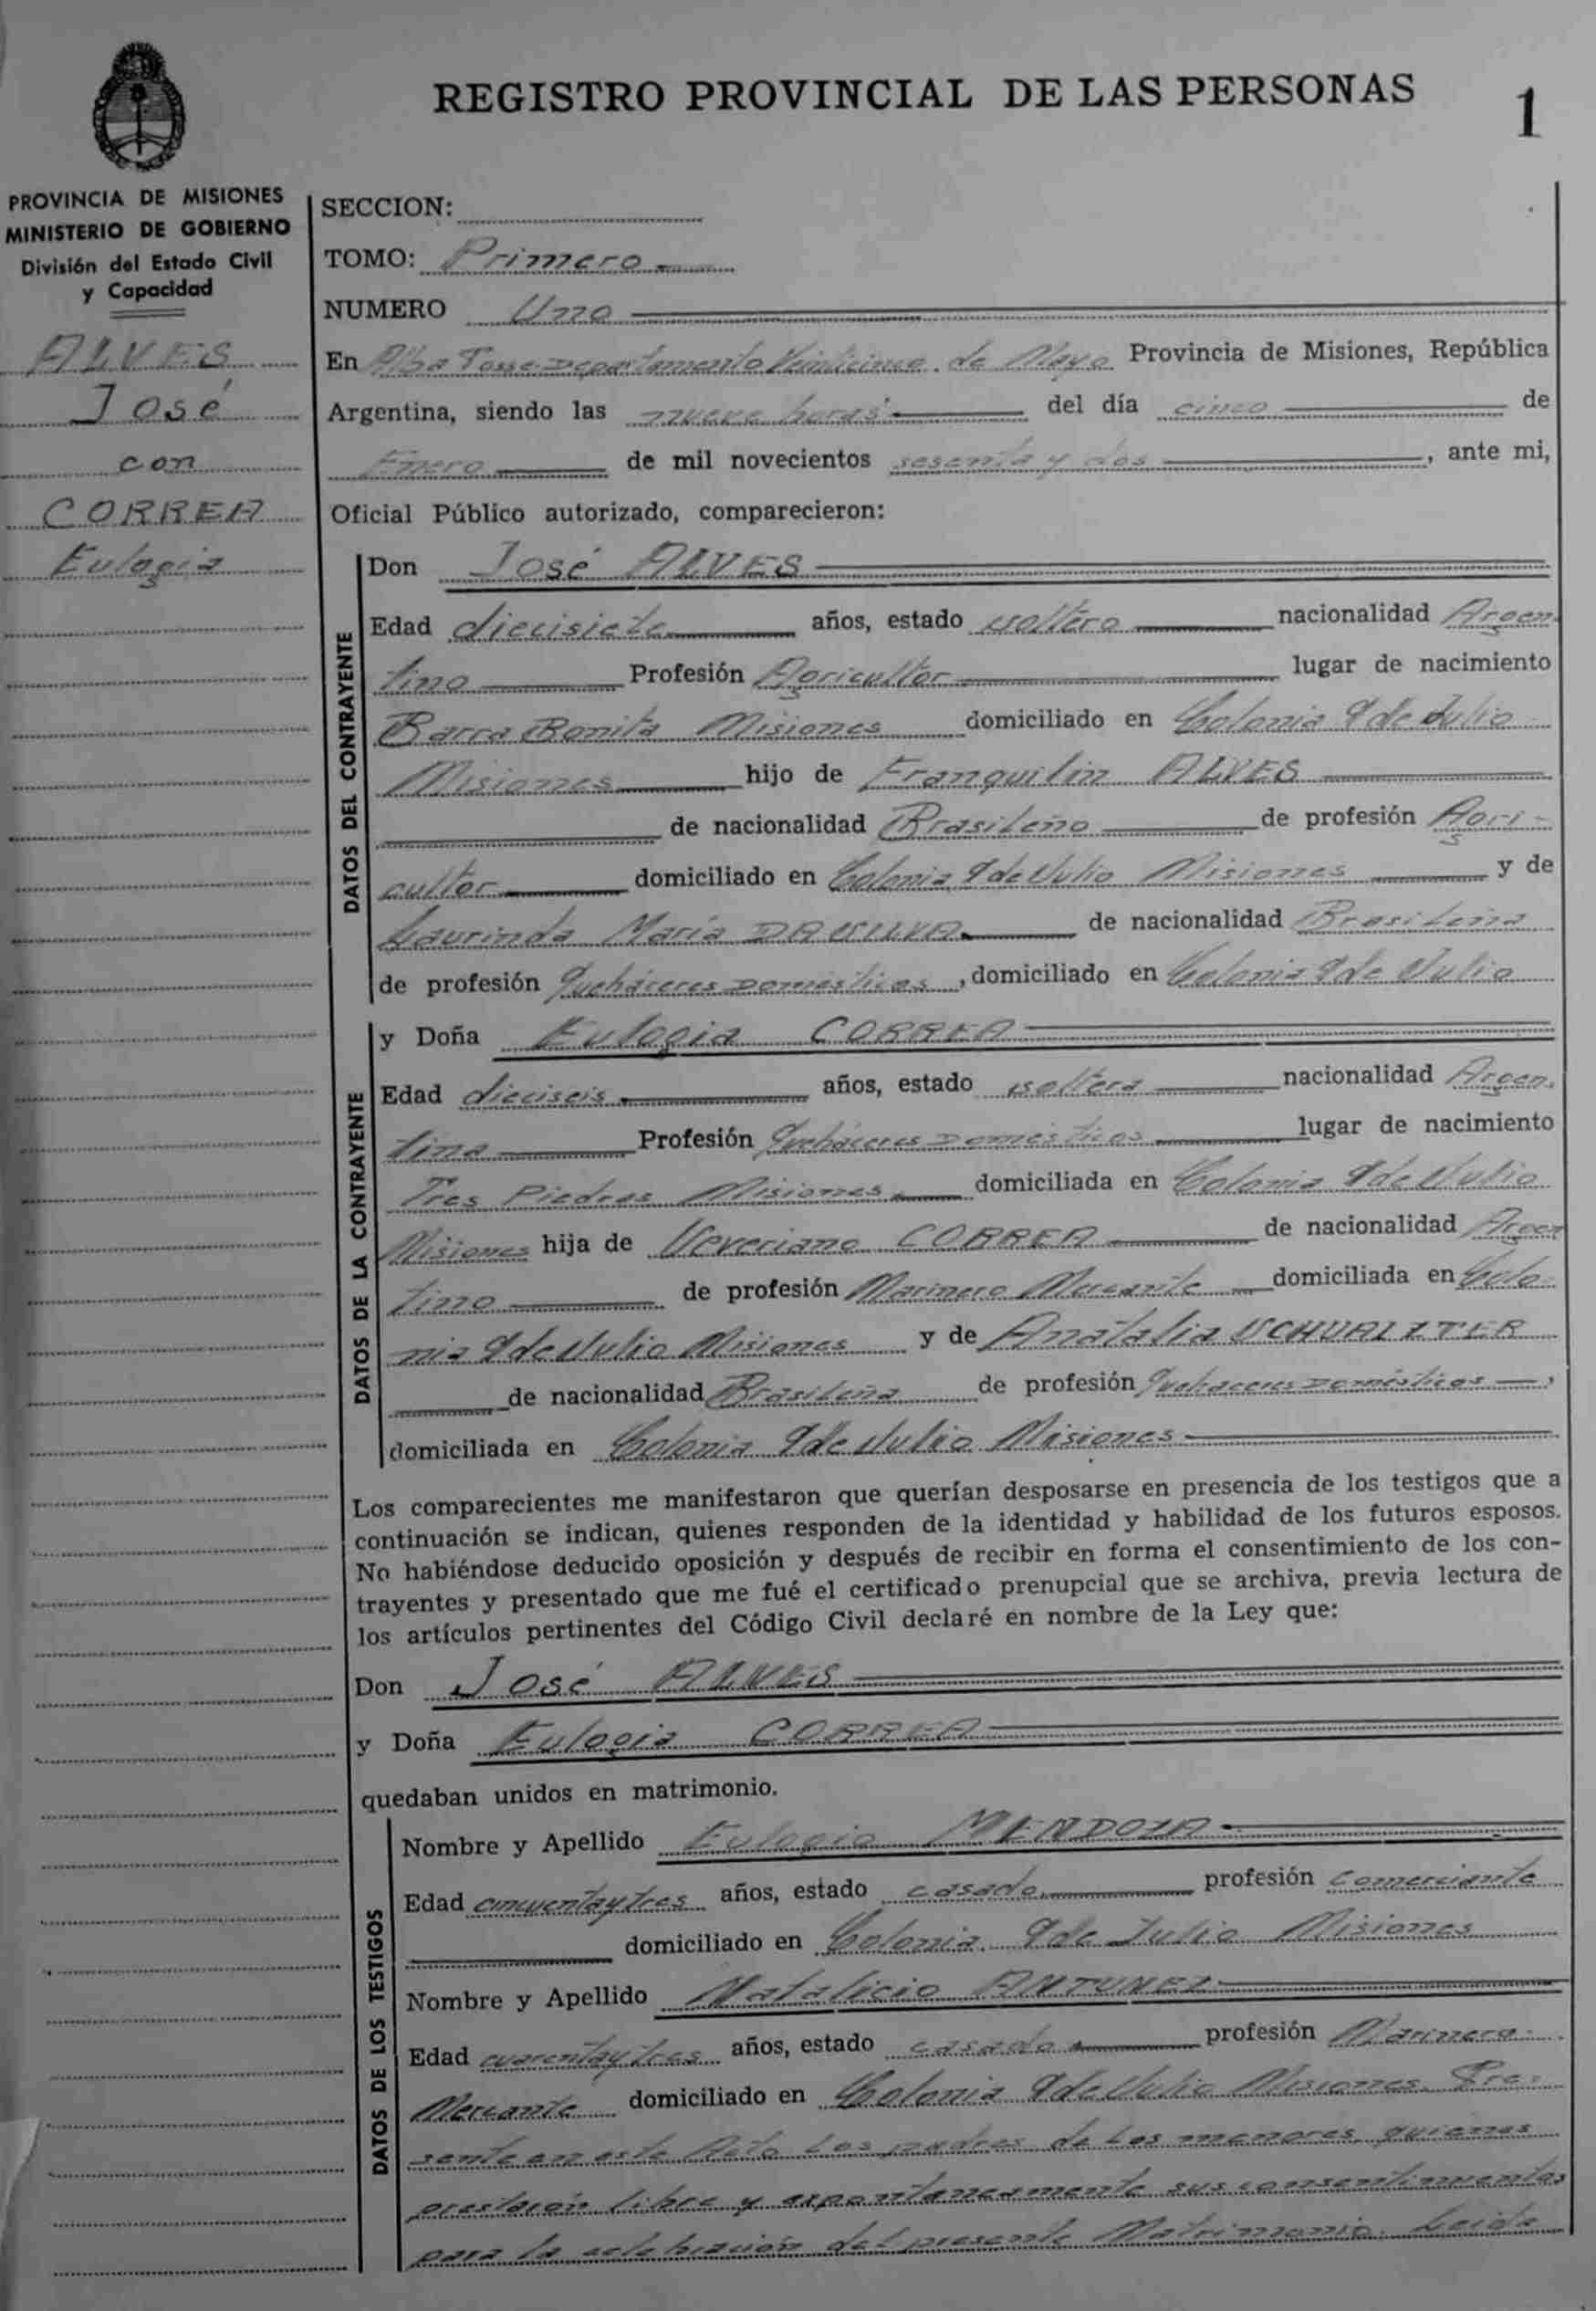 REGISTRO PROVINCIAL DE LAS PERSONAS
1
PROVINCIA DE MISIONES
MINISTERIO DE GOBIERNO
División del Estado Civil
y Capacidad
ALVES
José
con
CORREA
Eulogia
SECCION:
TOMO: Primero
NUMERO Uno
En Alba Posse Departamento Veinticinco de Mayo Provincia de Misiones, República
Argentina, siendo las nueve horas del día cinco de
Enero de mil novecientos sesenta y dos, ante mi,
Oficial Público autorizado, comparecieron:
DATOS DEL CONTRAYENTE
Don José ALVES
Edad diecisiete años, estado soltero nacionalidad Argen
tino Profesión Agricultor lugar de nacimiento
Barra Bonita Misiones domiciliado en Colonia 9 de Julio
Misiones hijo de Franquilin ALVES
de nacionalidad Brasileño de profesión Agri-
cultor domiciliado en Colonia 9 de Julio Misiones y de
Laurinda María DA SILVA de nacionalidad Brasileña
de profesión Quehaceres Domésticos, domiciliado en Colonia 9 de Julio
DATOS DE LA CONTRAYENTE
y Doña Eulogia CORREA
Edad dieciseis años, estado soltera nacionalidad Argen
tina Profesión Quehaceres Domésticos lugar de nacimiento
Tres Piedras Misiones domiciliada en Colonia 9 de Julio
Misiones hija de Severiano CORREA de nacionalidad Argen
tino de profesión Marinero Mercante domiciliada en Colo
nia 9 de Julio Misiones y de Anatalia
de nacionalidad Brasileña de profesión Quehaceres Domésticos,
domiciliada en Colonia 9 de Julio Misiones
Los comparecientes me manifestaron que querían desposarse en presencia de los testigos que a
continuación se indican, quienes responden de la identidad y habilidad de los futuros esposos.
No habiéndose deducido oposición y después de recibir en forma el consentimiento de los con-
trayentes y presentado que me fué el certificado prenupcial que se archiva, previa lectura de
los artículos pertinentes del Código Civil declaré en nombre de la Ley que:
Don José ALVES
y Doña Eulogia CORREA
quedaban unidos en matrimonio.
DATOS DE LOS TESTIGOS
Nombre y Apellido Eulogio MENDOZA
Edad cincuentaytres años, estado casado profesión Comerciante
domiciliado en Colonia 9 de Julio Misiones
Nombre y Apellido Natalicio ANTUNEZ
Edad cuarentaytres años, estado casado profesión Marinero
Mercante domiciliado en Colonia 9 de Julio Misiones. Pre-
sente en este Acto Los padres de Los menores, quienes
prestaron libre y expontaneamente sus consentimientos
para la celebración del presente Matrimonio. Leida